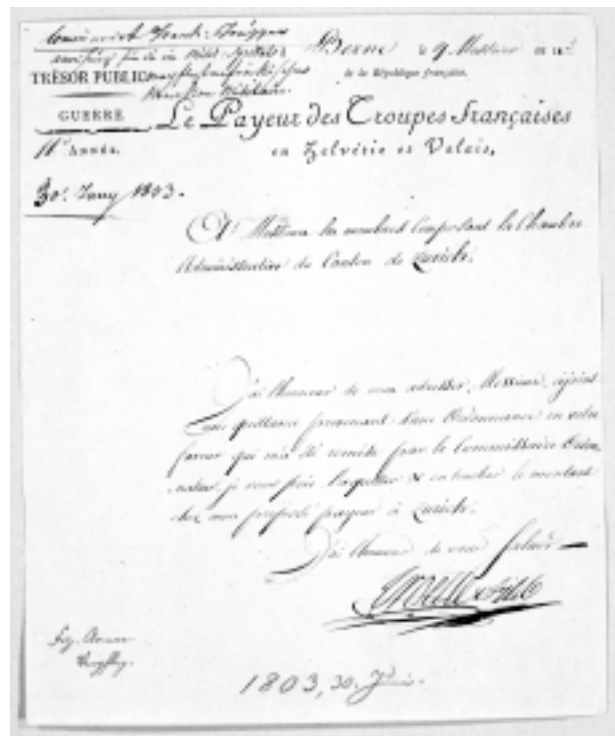 Berne le 9 Messidor an 11.e
TRÉSOR PUBLIC
de la République française.
GUERRE.
Le Payeur des Troupes françaises
11.e Année.
en Helvétie et Valais,
30. Juny 1803.
A Messieurs les membres Composant la Chambre
Administrative du Canton de Zurich.
J'ai l'honneur de vous adresser, Messieurs, cijoint
une quittance provenant d'une Ordonnance en votre
faveur qui m'a été remise par le Commissaire Ordon-
-nateur, je vous prie l'aquitter & en toucher le montant
chez mon préposé payeur à Zurich.
J'ai l'honneur de vous saluer
1803, 30. Junii.